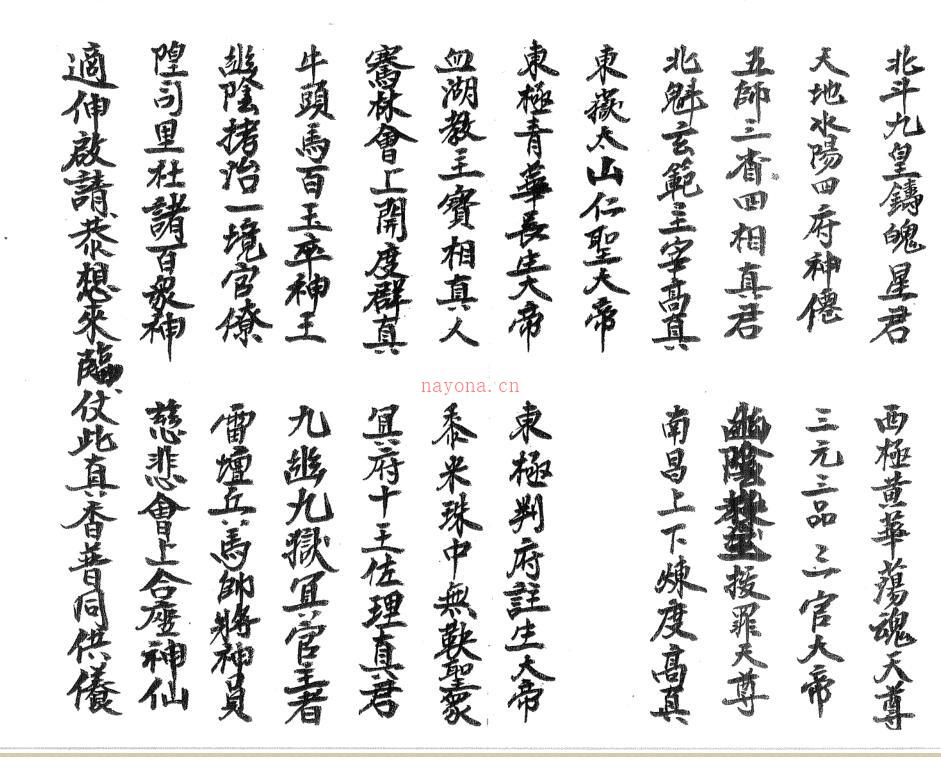 北斗九皇鑄魄星君
西極黄華蕩魂天尊
天地水陽四府神僊
三元三品三官大帝
五師三省四相真君
幽陰教主拔罪天尊
北魁玄範主宰高真
南昌上下煉度高真
東嶽太山仁聖大帝
東極青華長生大帝
東極判府註生大帝
血湖教主寶相真人
黍米珠中無鞅聖衆
騫林會上開度群真
冥府十王佐理真君
牛頭馬百玉卒神王
九幽九獄冥官主者
幽陰拷治一境官僚
雷壇兵馬帥將神員
隍司里社諸百衆神
慈悲會上合座神仙
適伸啟請恭想來臨仗此真香普同供養
nayona.cn